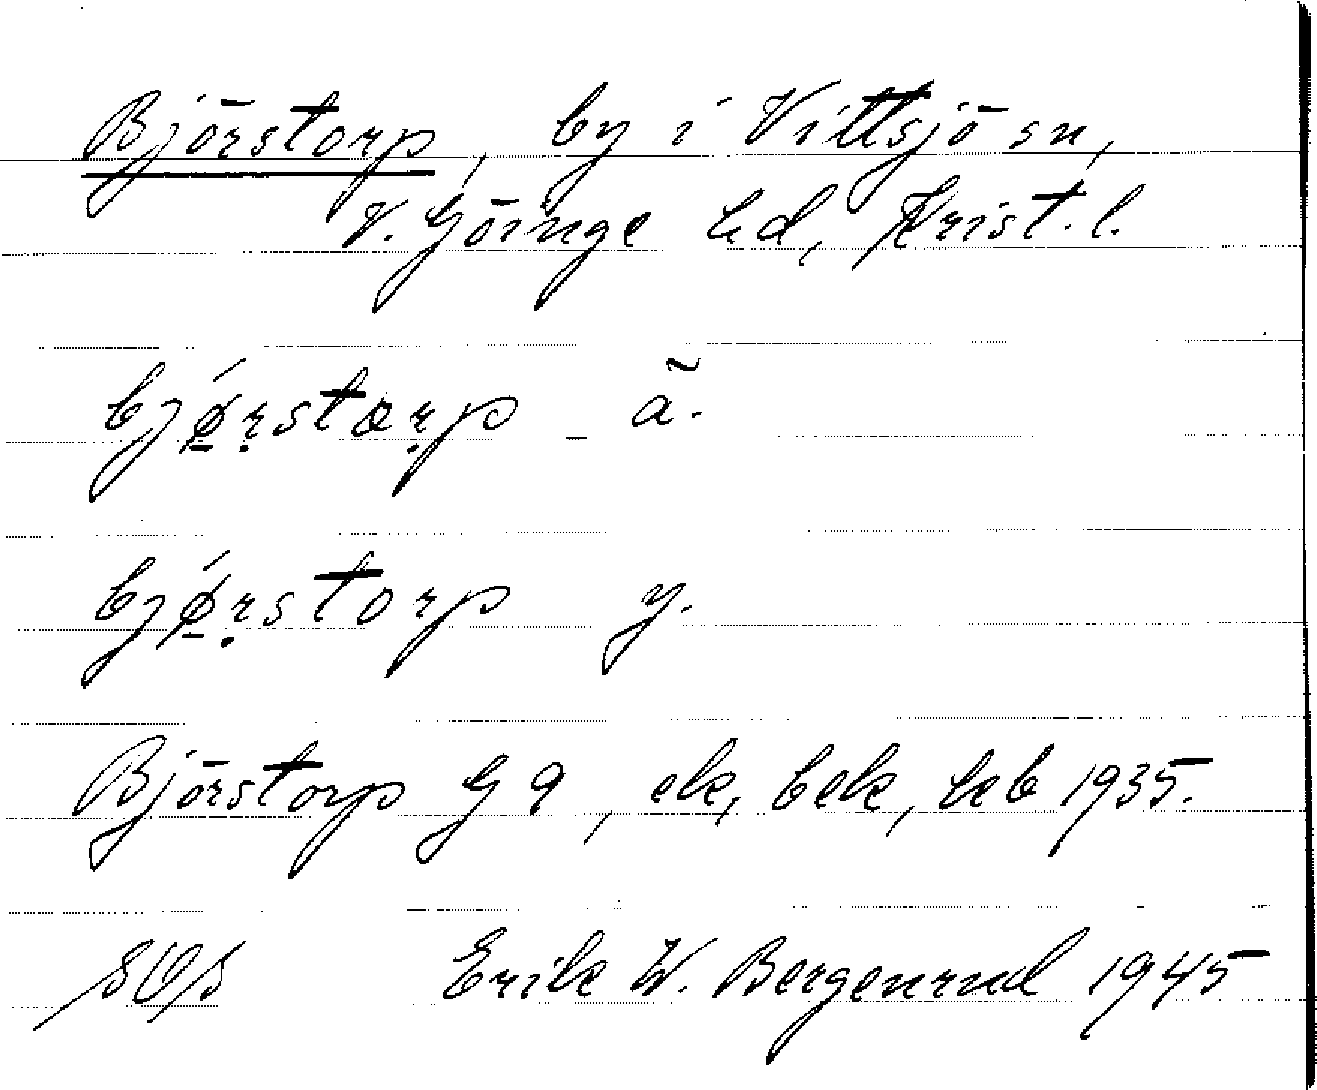 Björstorp, by i Vittsjö sn,
V. Göinge hd, Krist. l.
bjǿ̠ṛstæṛp ä.
bjǿ̠ṛstorp y.
Björstorp G 9, ek, bek, heb 1935.
SOS Erik W. Bergenrud 1945